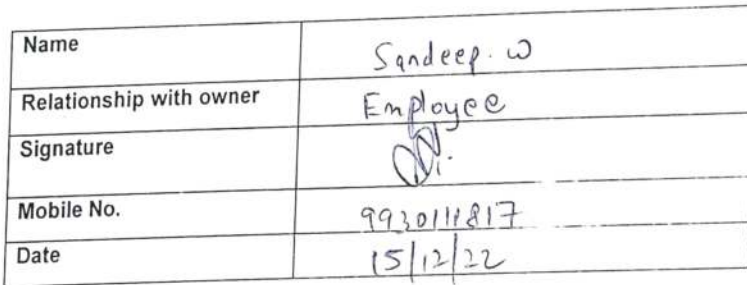 Name Sandeep. W
Relationship with owner Employee
Signature
Mobile No. 9930111817
Date 15/12/22